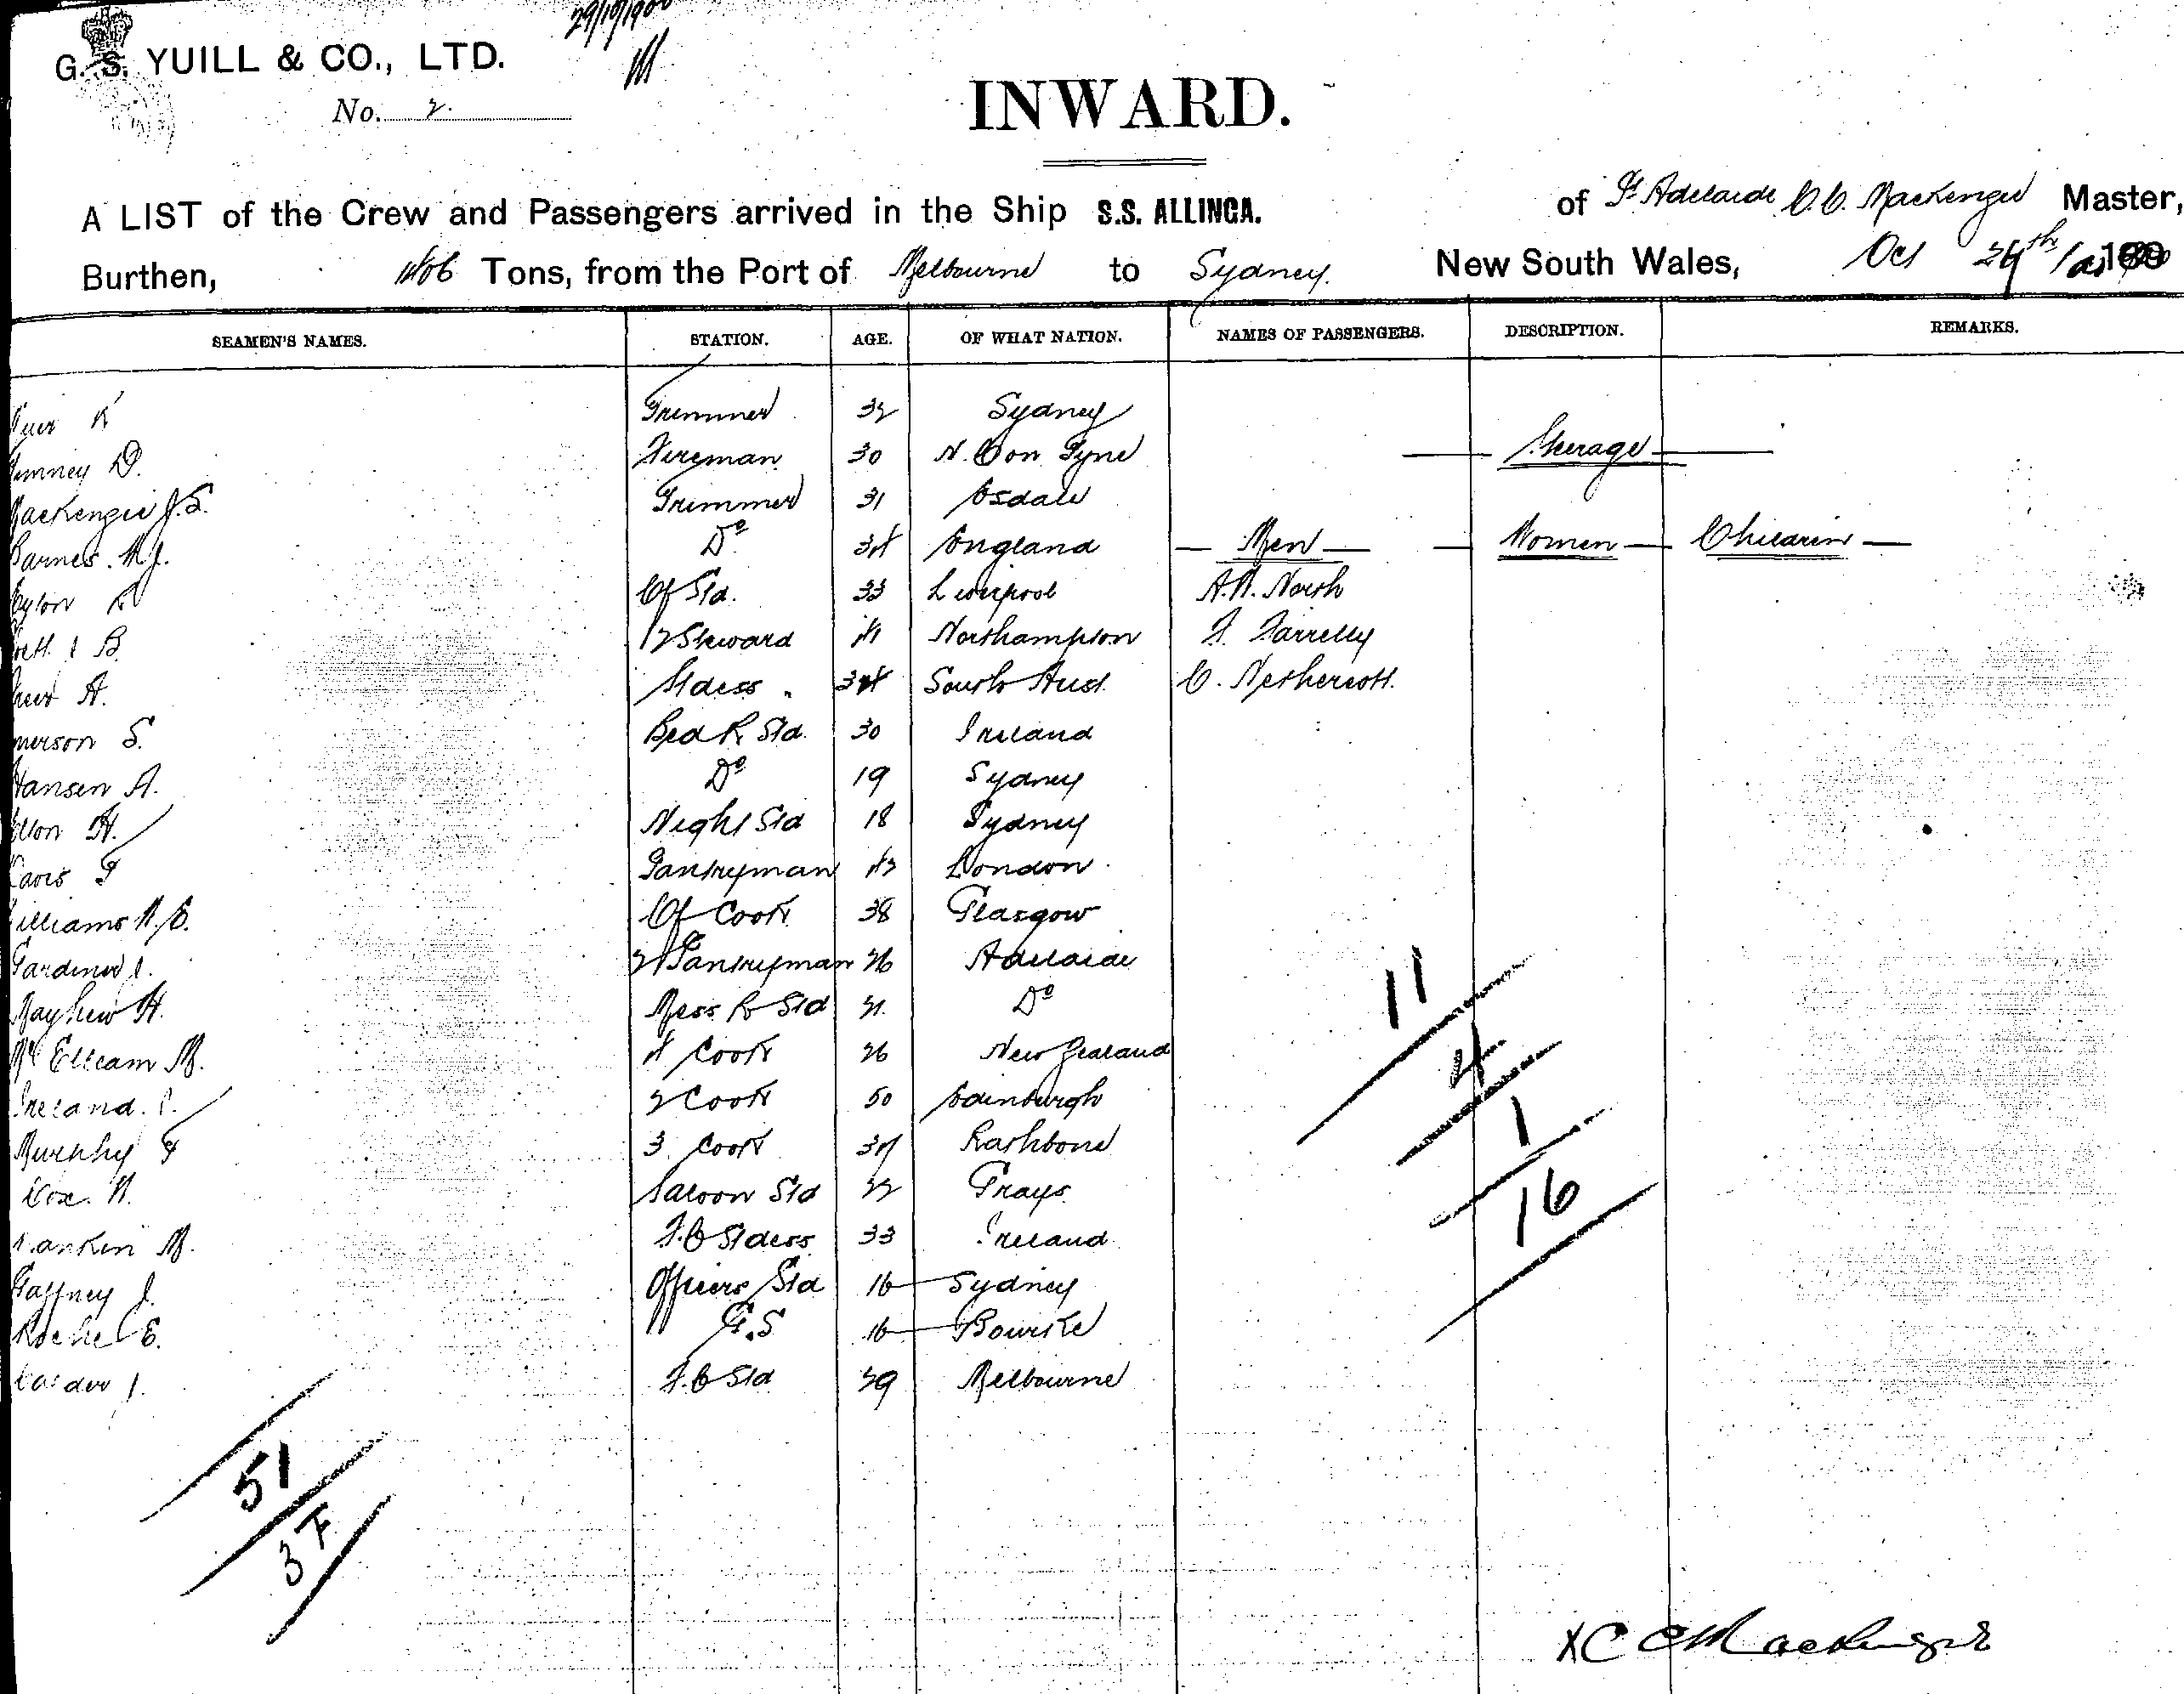 29/10/1900
G. S. YUILL & CO., LTD.
No. 2.
INWARD.
A LIST of the Crew and Passengers arrived in the Ship S.S. ALLINGA. of Pt Adelaide C. C. Mackenzie Master,
Burthen, Tons, from the Port of Melbourne to Sydney. New South Wales, Oct
SEAMEN'S NAMES. STATION. AGE. OF WHAT NATION. NAMES OF PASSENGERS. DESCRIPTION. REMARKS.
K Trimmer 32 Sydney
D. Fireman 30 N. C on Tyne Steerage
Mackenzie J.S. Trimmer 31 Esdale
Barnes. M.J. Do England Men Women Children
Cf Std. 33 Liverpool A.W. North
B. 2 Steward Northampton F. Farrelly
A. Stdess South Aust. C. Nethercott.
S. Bed R Std. 30 Ireland
Hansen A. Do 19 Sydney
H. Night Std 18 Sydney
Davis F Pantryman London
Williams W.E. Cf Cook 38 Glasgow
Gardiner J. 2 Pantryman 26 Adelaide
Mayhew H. Mess R Std 21. Do
Mc Elleam M. Cook 26 New Zealand
Ireland. 2 Cook 50 Edinburgh
Murphy F 3. Cook Rathbone
Cox. W. Saloon Std 22 Grays
Rankin M. F.C Stdess 33 Ireland
Gaffney J. Officers Std 16 Sydney
Roche E. G.S 16 Bourke
J. F.C Std 29 Melbourne
11
4
1
16
51
3 F
X C C Mackenzie